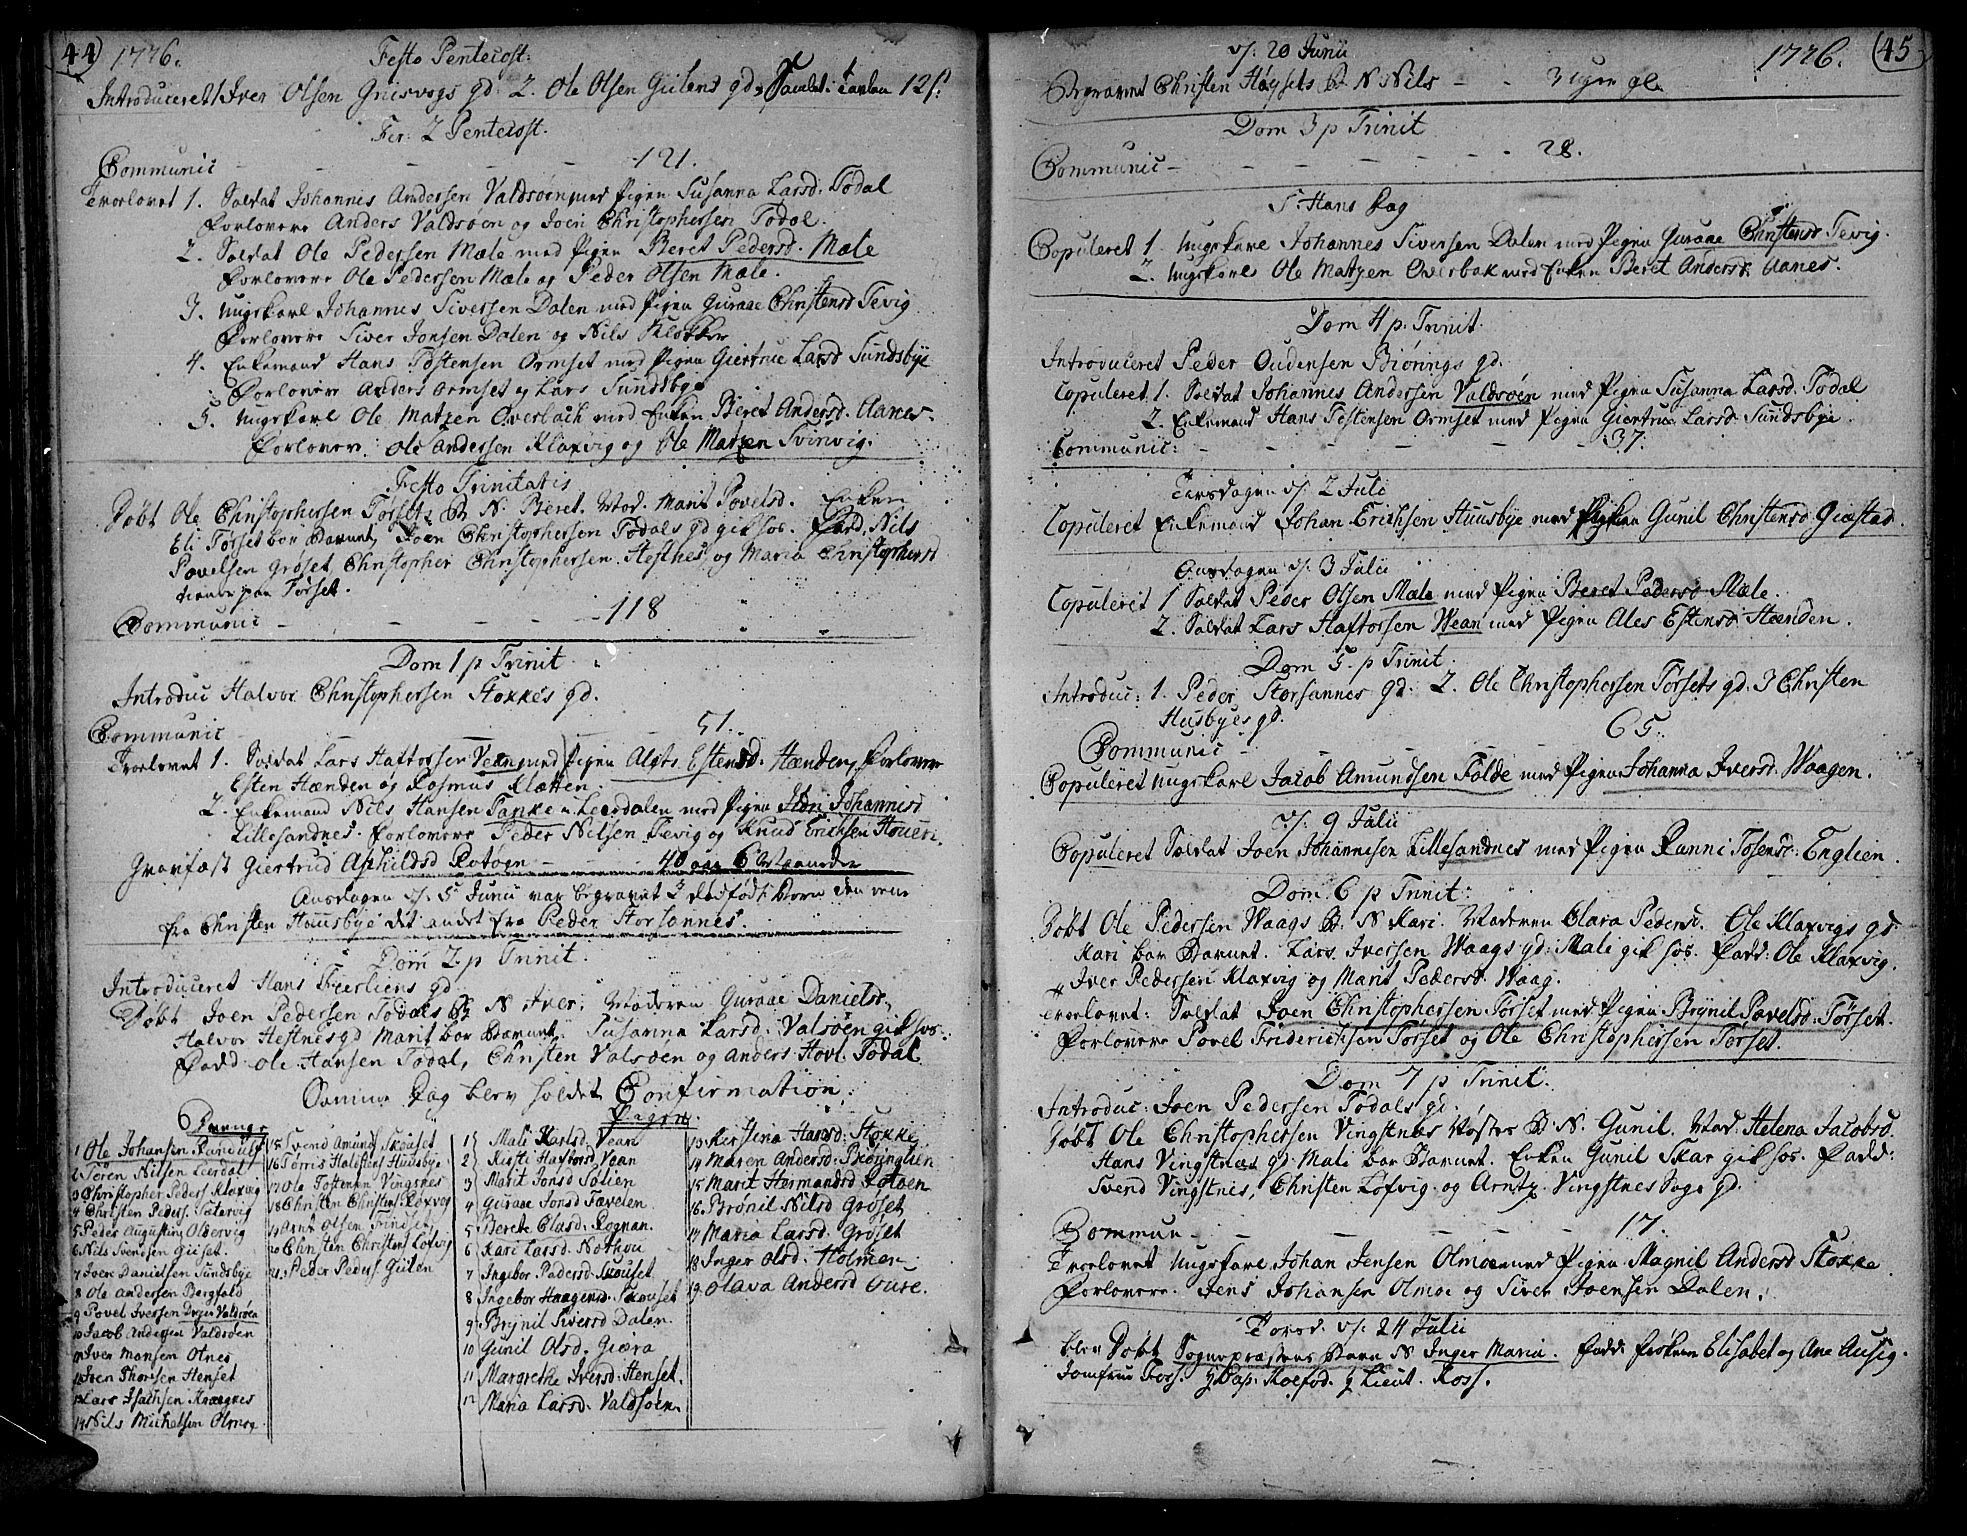 44 1776.
Festo Pentecost:
Introduceret 1 Iver Olsen Grisvogs gd 2. Ole Olsen Gulens gd. Samlet i Tavlen 12 s.
Fer: 2 Pentecost.
Communic - - - - 121.
Trorlovet 1. Soldat Johannis Andersen Valdsøen med Pigen Susanna Larsd: Todal
Forlovere Anders Valdsøen og Joen Christophersen Todal.
2. Soldat Ole Pedersen Mæle med Pigen Beret Pedersd. Mæle
Forlovere Ole Pedersen Mæle og Peder Olsen Mæle.
3. Ungkarl Johannes Siversen Dalen med Pigen Guraae Christensd Tevig
Forlovere Siver Jonsen Dalen og Nils Klokker
4. Enkemand Hans Tostensen Ormset med Pigen Giertrue Larsd Sundsbye
Forlovere Anders Ormset og Lars Sundsbye
5. Ungkarl Ole Matzen Overbach med Enken Beret Andersd. Aanes.
Forlovere: Ole Andersen Klaxvig og Ole Matzen Svinvig.
Festo Trinitatis
Døbt Ole Christophersen Torsets B N. Beret. Mod. Marit Povelsd. Enken
Eli Torset bar Barnet, Joen Christophersen Todals gd gik hos. Fad. Nils
Povelsen Grøset, Christopher Christophersen Hestnes, og Maria Christophersd
tiener paa Torset.
Communic - - - - 118
Dom 1 p Trinit
Introduc Halvor Christophersen Stokkes gd.
Communic - - - 51.
Trorlovet 1. Soldat Lars Haftorsen Vean med Pigen Alet Estensd. Hænden, Forlovere
Esten Hænden og Rasmus Kletten.
2. Enkemand Nils Hansen Tanke i Leerdalen med Pigen Ildri Johannisd
Lillesandnes. Forlovere Peder Nilsen Tevig og Knud Erichsen Houen.
Gravfæst Giertrud Ashildsd Rotøen - - - 40 aar 6 Maaneder
Onsdagen d. 5 Junii var begravet 2 dødfødt Børn den eene
fra Christen Huusbye det andet fra Peder Storsannes.
Dom 2 p Trinit.
Introduceret Hans Fierliens gd
Døbt Joen Pedersen Todals B N Iver. Moderen Guraae Danielsd.
Halvor Hestnes gd Marit bar Barnet. Susanna Larsd. Valsøen gik hos.
Fadd Ole Hansen Todal, Christen Valsøen og Anders Hovl. Todal
Samme Dag blev holdet Confirmation.
Drenge
1 Ole Johansen Randulf
2 Søren Nilsen Leerdal
3 Christopher Peders Klaxvig
4 Christen Peders. Sætervig
5 Peder Augustin Oldervig
6 Nils Svendsen Giiset.
7 Joen Danielsen Sundsbye
8 Ole Andersen Bergfald
9 Povel Iversen Valdsøen
10 Jacob Andersen Valdsøen
11 Iver Monsen Otnes
12 Joen Thorsen Henset
13 Lars Isachsen Knægnes
14 Nils Michelsen Olmoe
15 Svend Amunds Skouset
16 Torris Halesten Huusbye
17 Ole Tostensen Vingsnes
18 Christen Christens. Klaxvig
19 Arnt Olsen Trindset
20 Christen Christens Lofvig
21 Peder Peders Gulen
Pigen.
1 Mali Karlsd. Vean
2 Kirsti Haftorsd Vean
3 Marit Jonsd Solien
4 Guraae Jonsd Tavelen
5 Berete Olasd. Rognan.
6 Kari Larsd. Nothou
7 Ingebor Pedersd. Skouset
8 Ingebor Haagensd. Skouset
9 Brynil Siversd Dalen
10 Gunil Olsd. Giæra
11 Margrethe Iversd. Henset.
12 Maria Larsd. Valdsøen.
13 Kierstina Hansd. Stokke
14 Maren Andersd. Skoinglien
15 Marit Hermandsd Rotøen
16. Brønil Nilsd Grøset
17 Maria Larsd. Grøset
18 Inger Olsd. Holmen
19. Olava Andersd Oure.
45
1776.
d. 20 Junii
Begravet Christen Høysets B. N Nils - - 3 uger gl.
Dom 3 p Trinit
Communic - - - - 28.
S. Hans Dag
Copuleret 1. Ungkarl Johannes Siversen Dalen med Pigen Guraae Christensd Tevig.
2. Ungkarl Ole Matzen Overbak med Enken Beret Andersd. Aanes.
Dom 4 p. Trinit.
Introduceret Peder Oudensen Biørings gd.
Copuleret 1. Soldat Johannes Andersen Valdsøen med Pigen Susanna Larsd. Todal
2. Enkemand Hans Tostensen Ormset med Pigen Giertrue Larsd. Sundsbye
Communic: - - - 37.
Tirsdagen d. 2 Juli
Copuleret Enkemand Johan Erichsen Huusbye med Pigen Gunil Christensd Giæstad.
Onsdagen d. 3 Julii
Copuleret 1 Soldat Peder Olsen Mæle med Pigen Beret Pedersd Mæle.
2. Soldat Lars Haftorsen Wean med Pigen Ales Estensd Hænden.
Dom 5. p Trinit
Introduc: 1. Peder Storsannes gd: 2. Ole Christophersen Torsets gd. 3 Christen
Husbyes gd.
Communic - 65.
Copuleret Ungkarl Jacob Amundsen Folde med Pigen Johanna Iversd. Waagen.
d. 9 Julii
Copuleret Soldat Joen Johannesen Lillesandnes med Pigen Ranni Tosensd. Englien.
Dom 6 p Trinit:
Døbt Ole Pedersen Waags B. N Kari. Moderen Clara Pedersd. Ole Klaxvigs gd.
Kari bar Barnet. Lars Iversen Waags gd: Mali gik hos. Fadd: Ole Klaxvig.
Iver Pedersen Klaxvig og Marit Pedersd. Waag.
Trorlovet: Soldat Joen Christophersen Torset med Pigen Brynil Povelsd. Torset.
Forlovere Povel Friderichsen Torset og Ole Christophersen Torset.
Dom 7 p Trinit.
Introduc: Joen Pedersen Todals gd.
Døbt Ole Christophersen Vingstnes B. N. Gunil. Mod: Helena Jacobsd.
Hans Vingstnes gd Mali bar Barnet. Enken Gunil Skar gik hos. Fadd:
Svend Vingstnes, Christen Lofvig og Arntz Vingstnes Sogs gd.
Commun - - - 17.
Trorlovet Ungkarl Johan Jensen Olmoe med Pigen Magnil Andersd Stokke
Forlovere. Jens Johansen Olmoe og Siver Joensen Dalen.
Torsd. d. 24 Julii
blev Døbt Sognepræstens Barn N Inger Maria. Fadd: Frøken Elisabet og Ane Ausig.
Jomfrue Foss. Cap. Kolefod. Lieut. Ross.